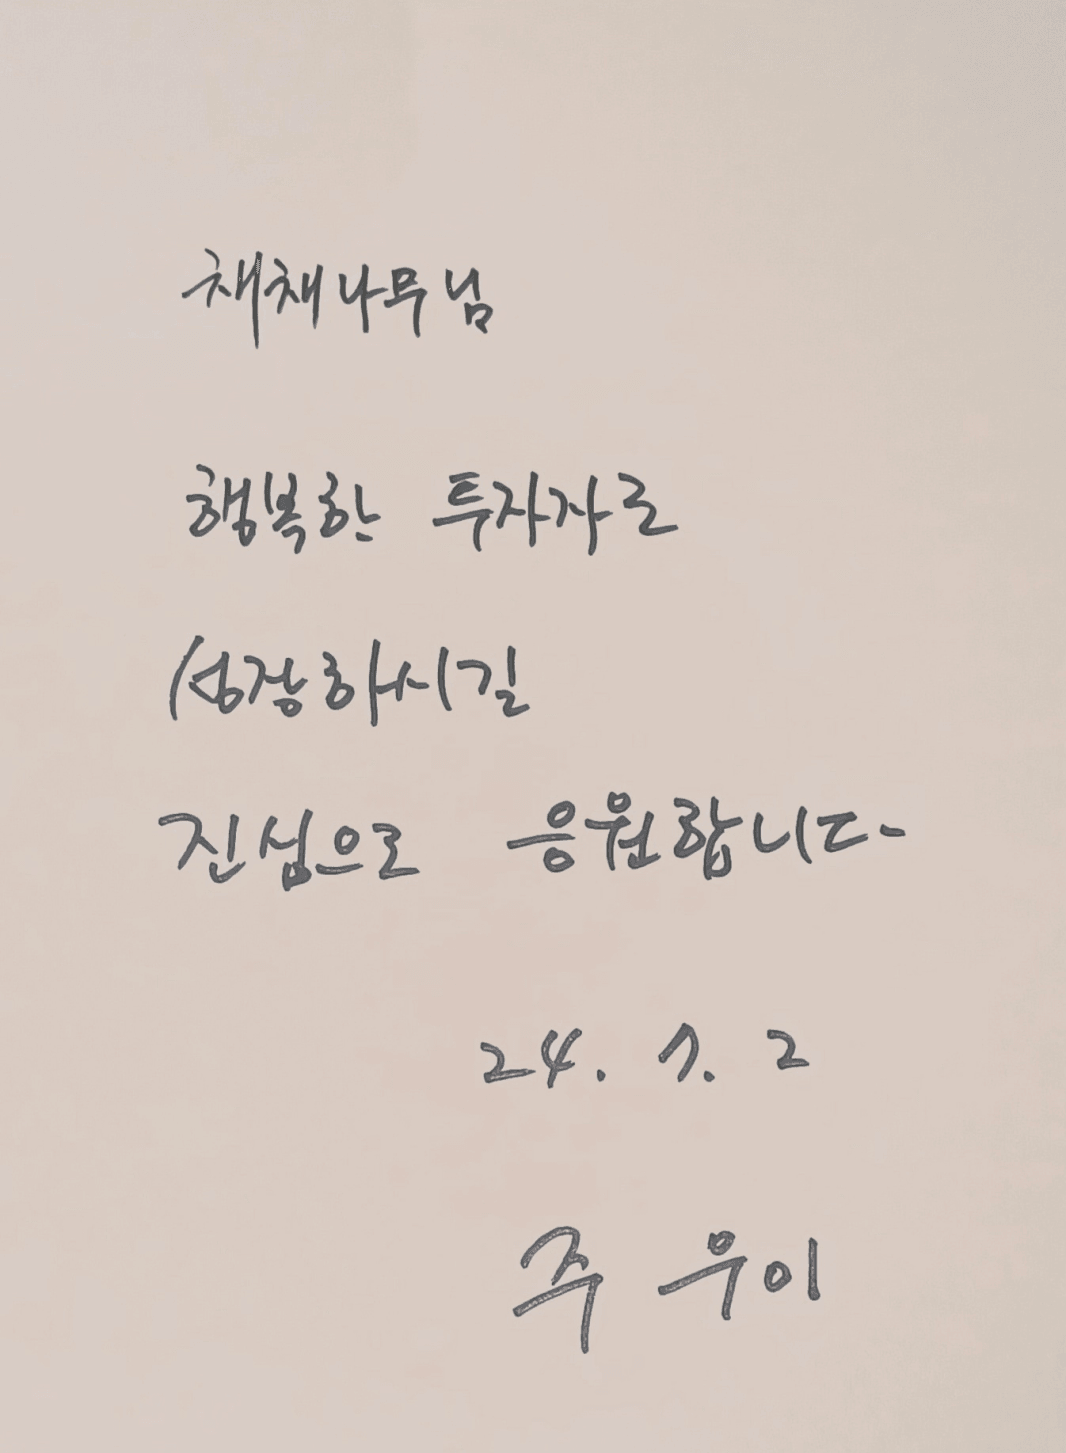 채채나무님
행복한 투자자로
성장하시길
진심으로 응원합니다-
24. 7. 2
주 우이